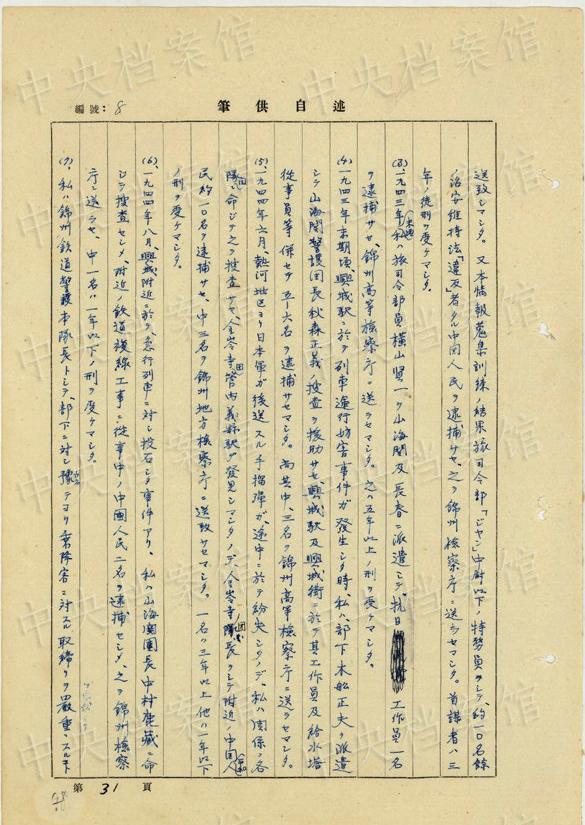 述自供筆
編號：8
送致シマシタ。又本情報蒐集訓練ノ結果旅司令部「ジヤン」中尉以下ノ特務員ヲシテ、約一〇名餘
ノ治安維持法「違反」者タル中国人民ヲ逮捕サセ、之ヲ錦州検察庁ニ送ラセマシタ。首謀者ハ三
年ノ徒刑ヲ受ケマシタ。
(3)一九四三年末頃私ハ旅司令部員横山賢一ヲ山海関及長春ニ派遣シテ、抗日 工作員一名
ヲ逮捕サセ、錦州高等検察庁ニ送ラセマシタ。之ハ五年以上ノ刑ヲ受ケマシタ。
(4)一九四三年末期頃、興城駅ニ於テ列車運行妨害事件ガ發生シタ時、私ハ部下木舩正夫ヲ派遣
シテ山海関警護団長秋森正義ノ捜査ヲ援助サセ、興城駅及興城街ニ於テ其工作員及給水塔
從事員等併セテ五－六名ヲ逮捕サセマシタ。尚其中、三名ヲ錦州高等検察庁ニ送ラセマシタ。
(5)一九四四年六月、熱河地区ヨリ日本軍ガ後送スル手榴彈ガ、途中ニ於テ紛失シタノデ、私ハ関係ノ各
団隊ニ命ジテ之ヲ捜査サセ、金岺寺団管内義縣駅デ發見シマシタノデ、金岺寺団長ヲシテ附近ノ中国人
民約一〇名ヲ逮捕サセ、中三名ヲ錦州地方検察庁ニ送致サセマシタ。一名ハ三年以上他ハ一年以下
ノ刑ヲ受ケマシタ。
(6)一九四四年八月、興城附近ニ於テ、急行列車ニ対シ投石シタ事件アリ、私ハ山海関団長中村 藏ニ命
シテ捜査セシメ、附近ノ鉄道複線工事ニ從事中ノ中國人民二名ヲ逮捕セシメ、之ヲ錦州検察
庁ニ送ラセ、中一名ハ一年以下ノ刑ヲ受ケマシタ。
(7)私ハ錦州鉄道警護本隊長トシテ、部下ニ対シ豫テヨリ乘降客ニ対スル取締リヲ嚴重ニスル下
第31頁
中央档案馆
中央档案馆
中央档案馆
中央档案馆
中央档案馆
中央档案馆